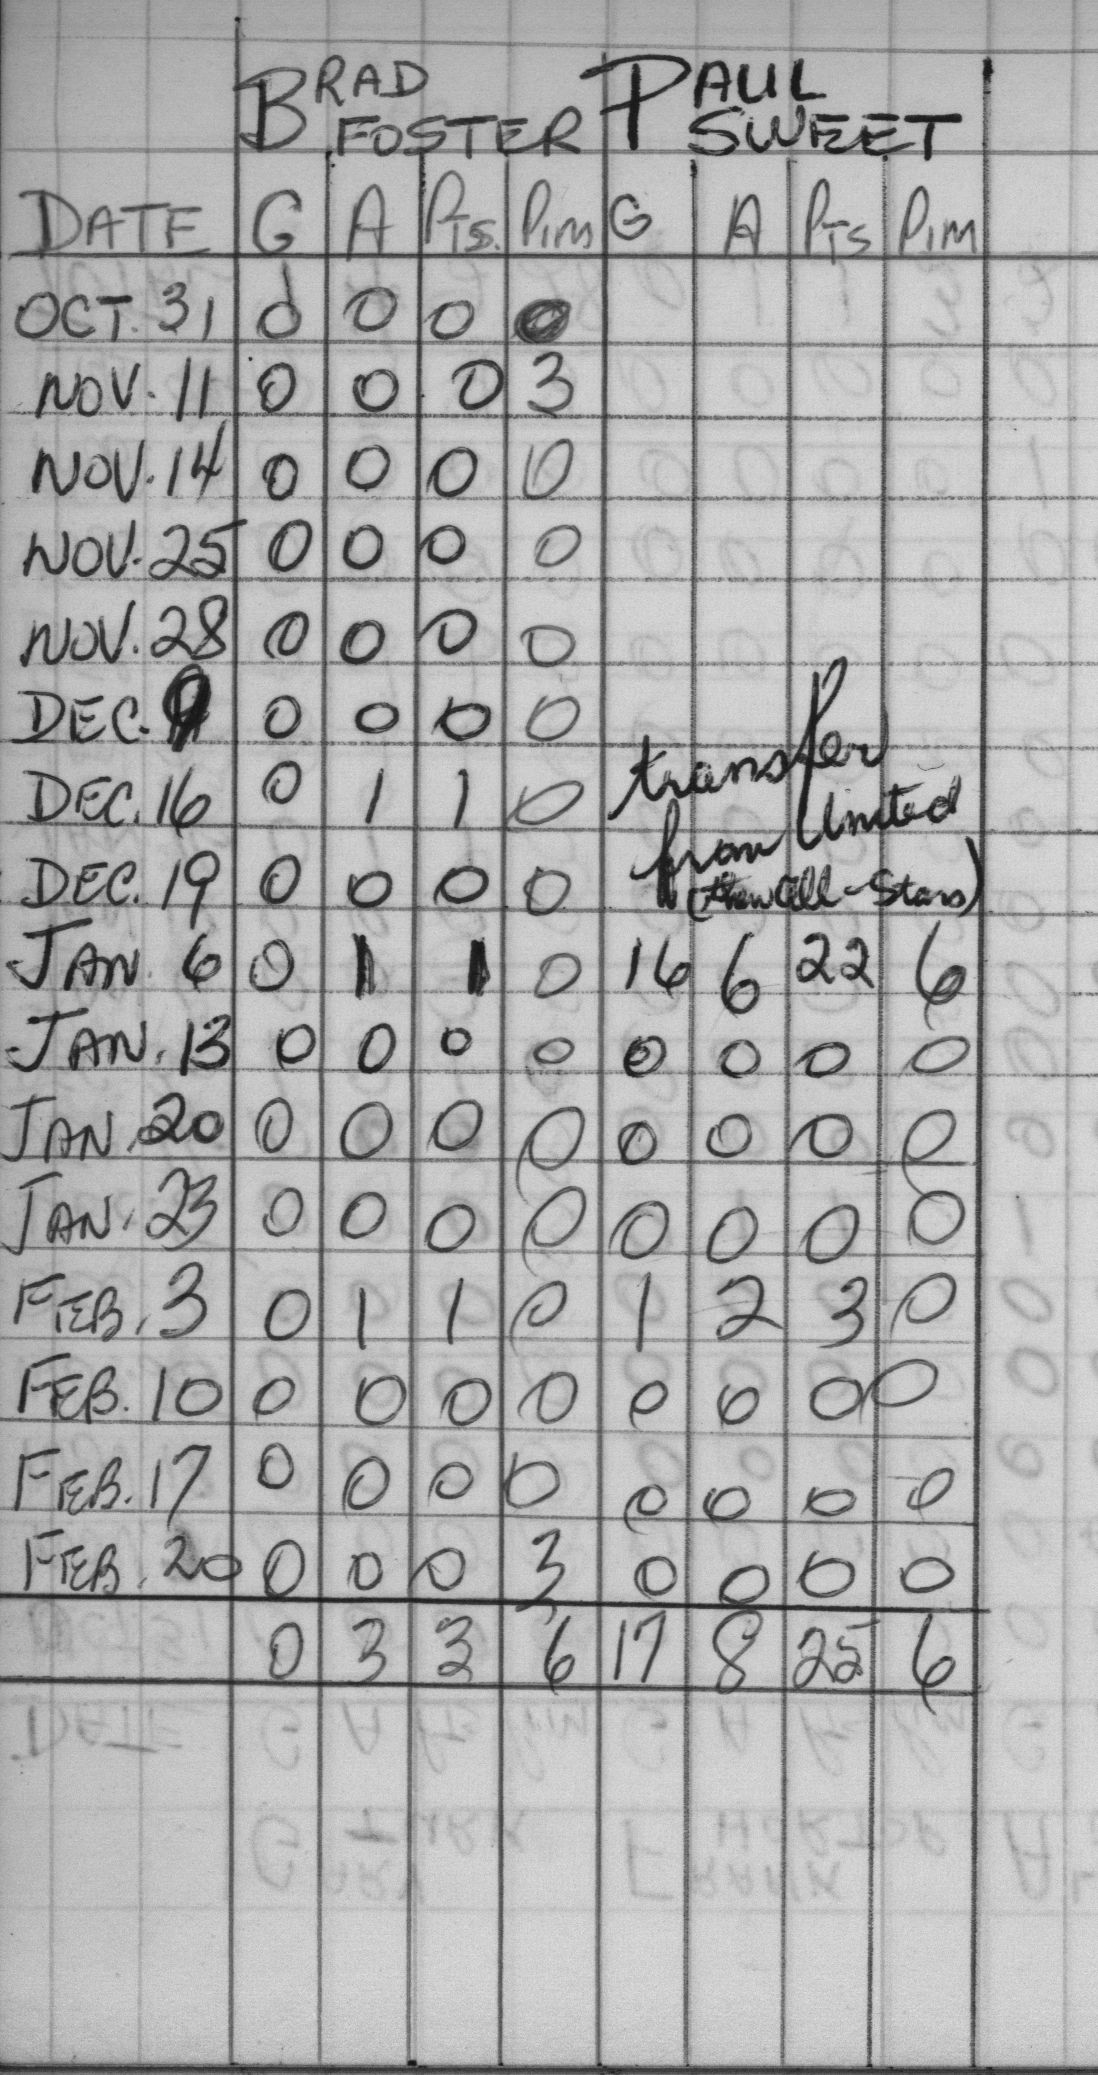 BRAD FOSTER PAUL SWEET
DATE G A PTS. PIM G A PTS PIM
OCT. 31 0 0 0 0
NOV. 11 0 0 0 3
NOV. 14 0 0 0 0
NOV. 25 0 0 0 0
NOV. 28 0 0 0 0
DEC. 9 0 0 0 0
DEC. 16 0 1 1 0 transfer
from United
DEC. 19 0 0 0 0 (then All-Stars)
JAN. 6 0 1 1 0 16 6 22 6
JAN. 13 0 0 0 0 0 0 0 0
JAN. 20 0 0 0 0 0 0 0 0
JAN. 23 0 0 0 0 0 0 0 0
FEB. 3 0 1 1 0 1 2 3 0
FEB. 10 0 0 0 0 0 0 0 0
FEB. 17 0 0 0 0 0 0 0 0
FEB. 20 0 0 0 3 0 0 0 0
0 3 3 6 17 8 25 6